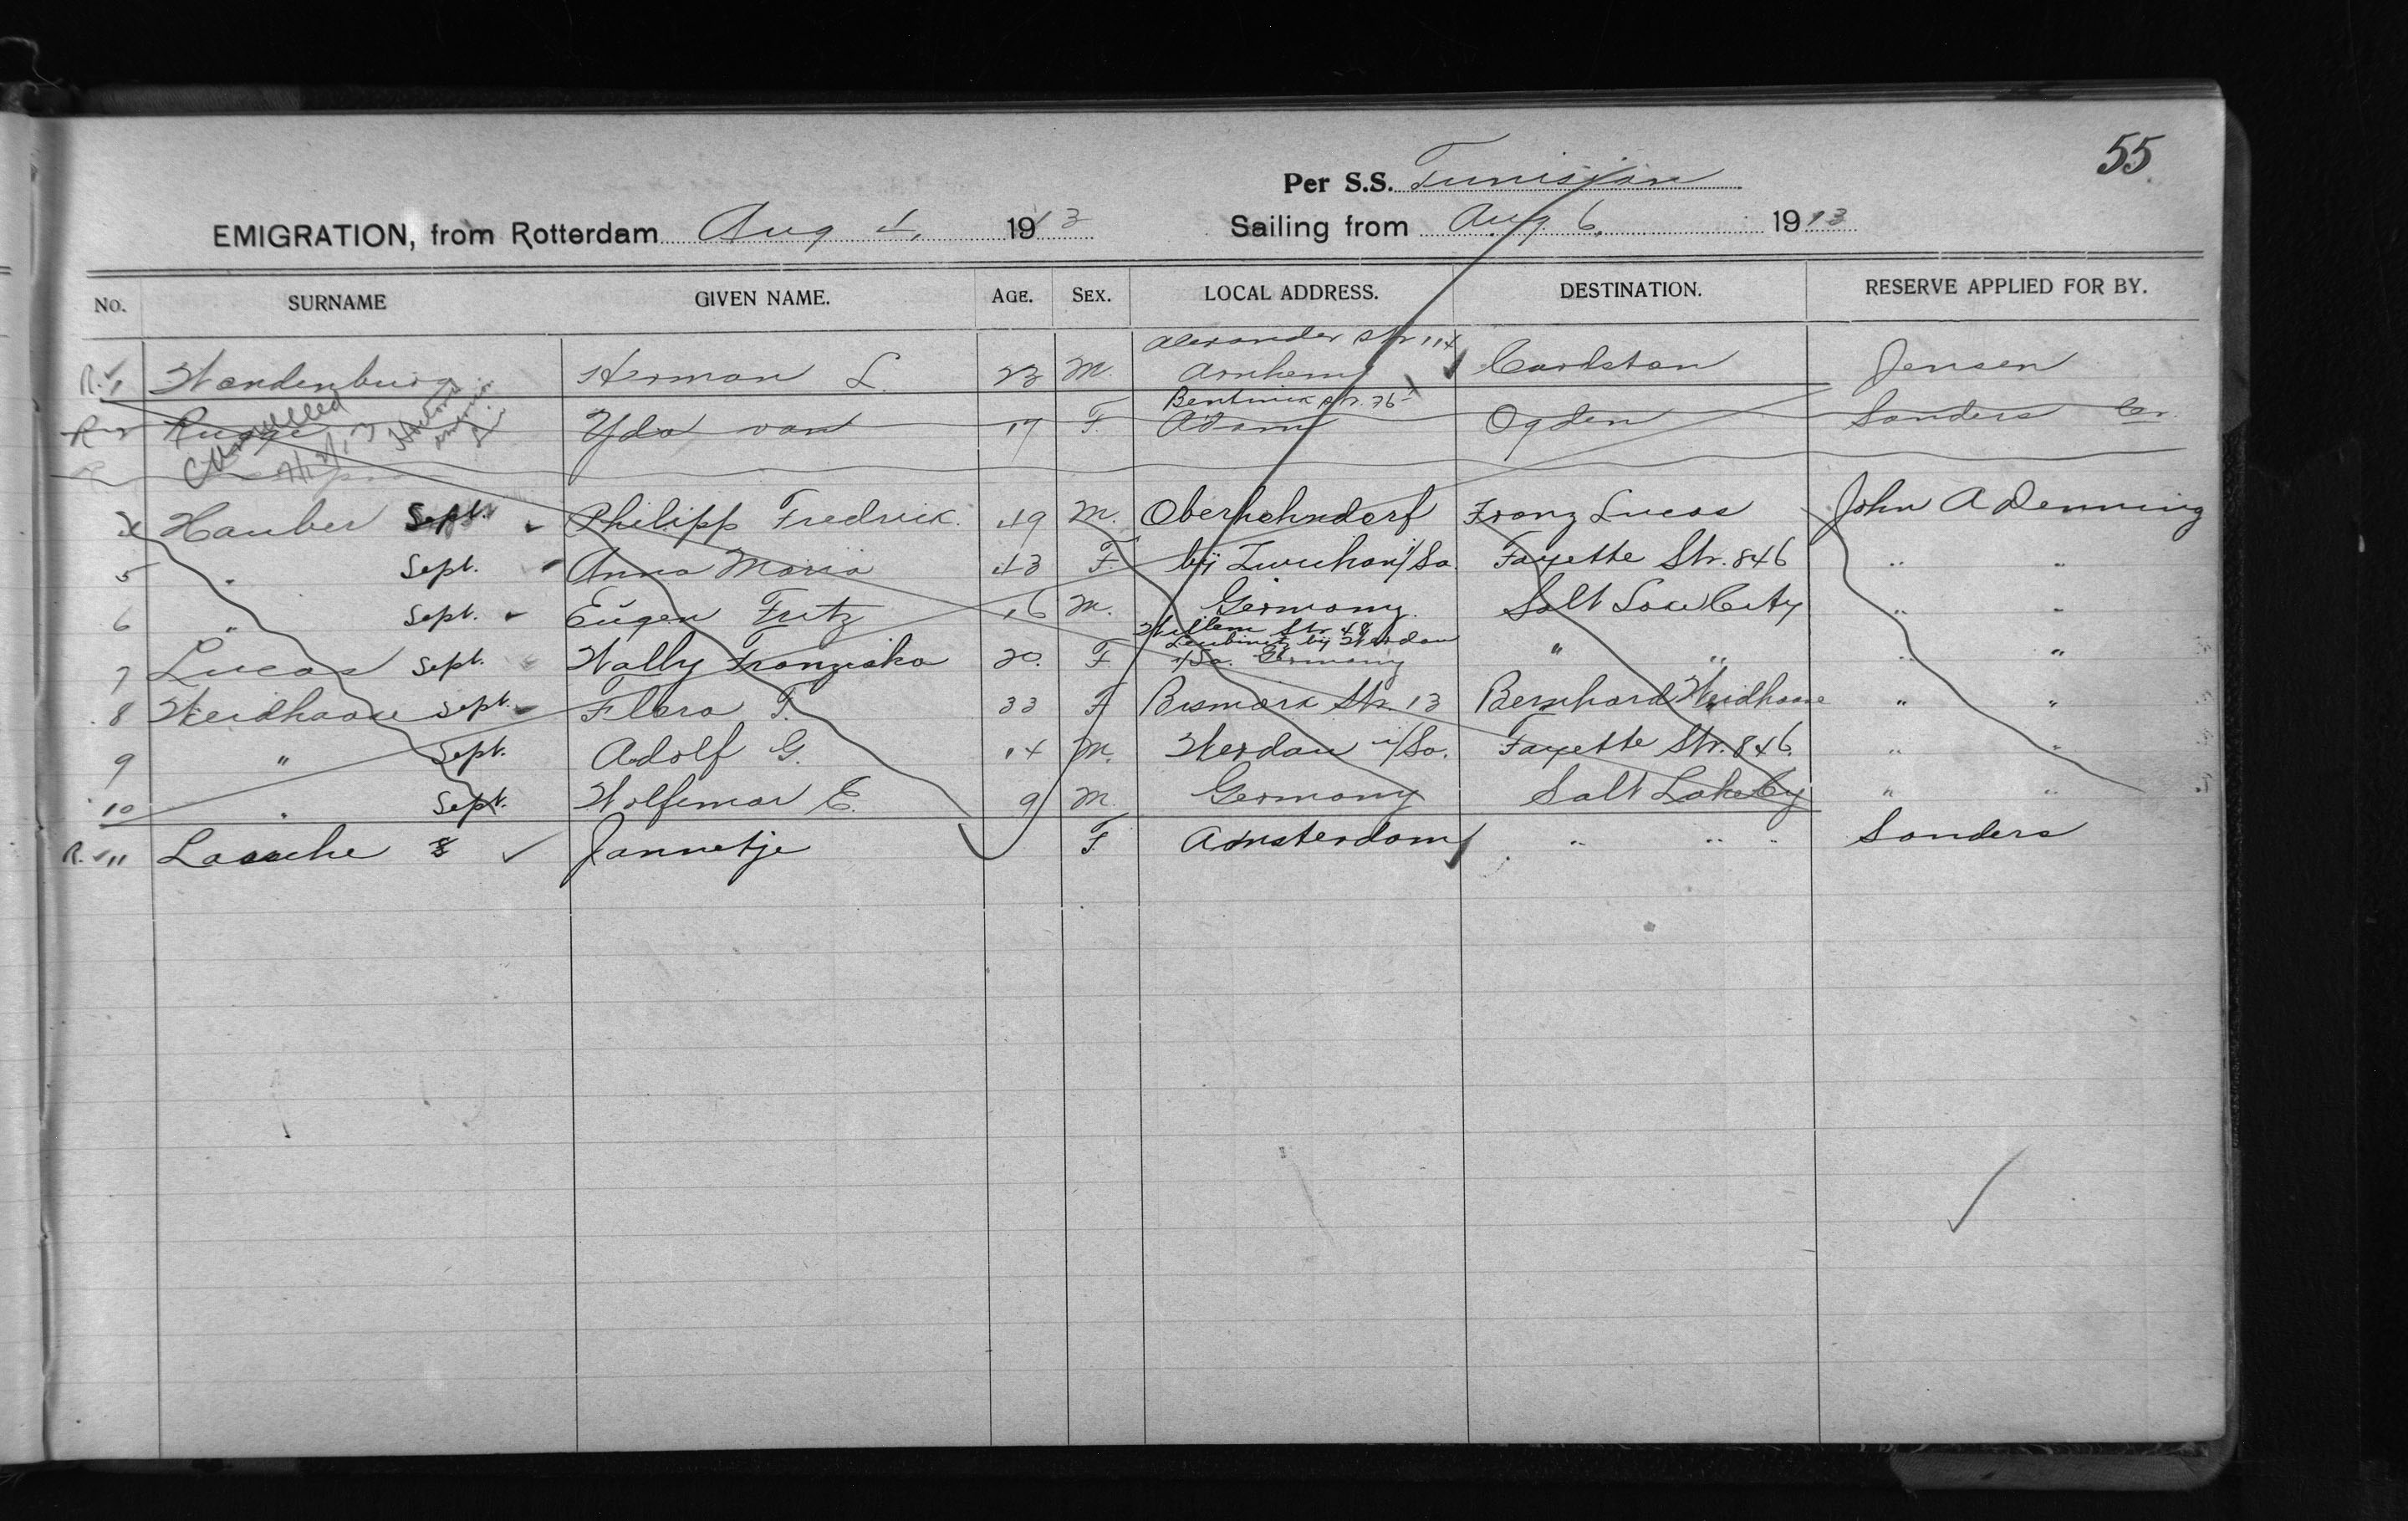 55
Per S.S. Tunisian
EMIGRATION, from Rotterdam Aug 4, 1913 Sailing from Aug. 6, 1913
No. SURNAME GIVEN NAME. AGE. SEX. LOCAL ADDRESS. DESTINATION. RESERVE APPLIED FOR BY.
Alexander Str 114
R. 1 Wandenburg Herman L. 23 M. Arnhem Cardston Jensen
Cancelled
Bentinck str. 76
R 2 Rugge Yda van 19 F. A'dam Ogden Sanders Cr.
Hauber Sept. Philipp Fredrick. 49 M. Oberhohndorf Franz Lucas John A Denning
5 " Sept. Anna Maria 43 F. bij Zwickau i/Sa. Fayette Str. 846 " "
6 " Sept. Eugen Fritz 16 M. Germany. Salt Lake City " "
Wilhem Str. 48
Leubnitz bij Werdau
7 Lucas Sept. Wally Franziska 20. F i/Sa. Germany " " " "
8 Weidhaase Sept. Flora T. 33 F Bismark Str. 13 Bernhard Weidhaase " "
9 " Sept. Adolf G. 14 M. Werdau i/Sa. Fayette Str. 846. " "
10 " Sept. Wolfemar E. 9 M. Germany Salt Lake Cy " "
R. 11 Lasche Jannetje F. Amsterdam " " " Sanders